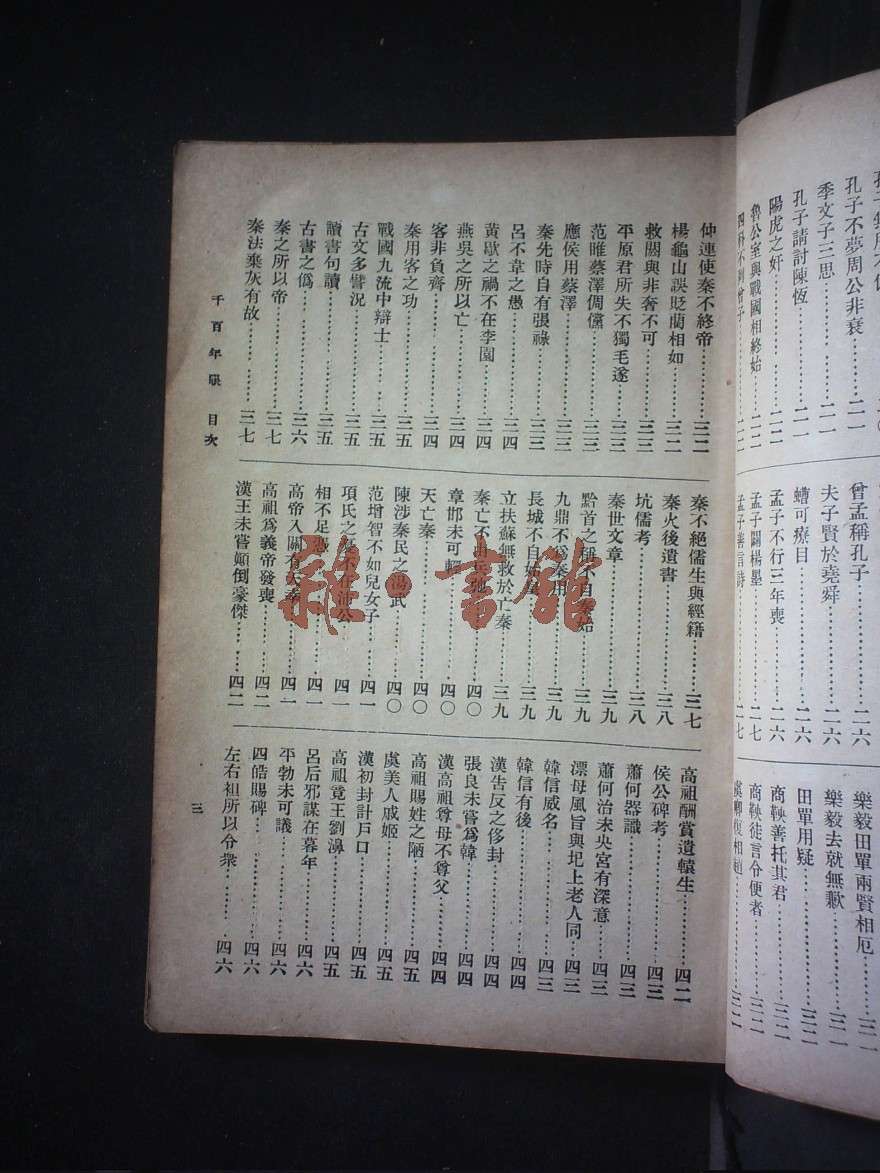 孔子不夢周公非衰……二一
季文子三思……二一
孔子請討陳恆……二一
陽虎之奸……二二
魯公室與戰國相終始……二二
曾孟稱孔子……二六
夫子賢於堯舜……二六
螬可療目……二六
孟子不行三年喪……二六
孟子闢楊墨……二七
孟子善言詩……二七
樂毅田單兩賢相厄……三一
樂毅去就無歉……三一
田單用疑……三二
商鞅善托其君……三二
商鞅徒言令便者……三二
虞卿復相趙……三二
仲連使秦不終帝……三二
楊龜山誤貶藺相如……三二
救閼與非奢不可……三三
平原君所失不獨毛遂……三三
范睢蔡澤倜儻……三三
應侯用蔡澤……三三
秦先時自有張祿……三三
呂不韋之愚……三四
黃歇之禍不在李園……三四
燕吳之所以亡……三四
客非負齊……三四
秦用客之功……三五
戰國九流中辯士……三五
古文多譬況……三五
讀書句讀……三五
古書之僞……三六
秦之所以帝……三七
秦法棄灰有故……三七
秦不絕儒生與經籍……三七
秦火後遺書……三八
坑儒考……三八
秦世文章……三九
黔首之稱不自秦始……三九
九鼎不爲秦用……三九
長城不自始皇……三九
立扶蘇無救於亡秦……三九
秦亡不由兵弛……四〇
章邯未可輕……四〇
天亡秦……四〇
陳涉秦民之湯武……四〇
范增智不如兒女子……四一
項氏之失不在沛公……四一
相不足憑……四一
高帝入關有天幸……四一
高祖爲義帝發喪……四二
漢王未嘗顛倒豪傑……四二
高祖酬賞遺轅生……四二
侯公碑考……四三
蕭何器識……四三
蕭何治未央宮有深意……四三
漂母風旨與圯上老人同……四三
韓信威名……四三
韓信有後……四四
漢告反之侈封……四四
張良未嘗爲韓……四四
漢高祖尊母不尊父……四四
高祖賜姓之陋……四五
虞美人戚姬……四五
漢初封計戶口……四五
高祖竟王劉濞……四五
呂后邪謀在暮年……四六
平勃未可議……四六
四皓賜碑……四六
左右袒所以令衆……四六
千百年眼 目次
三
雅·書館